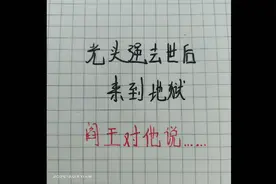 光头强去世后
来到地狱
阎王对他说……